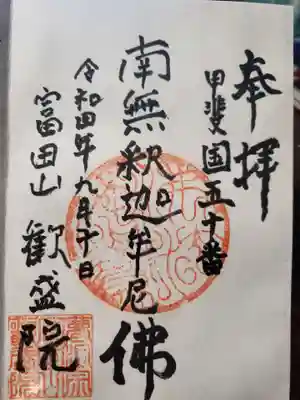 奉拝
甲斐国五十番
南無釈迦牟尼佛
令和四年九月十日
富田山 歓盛院